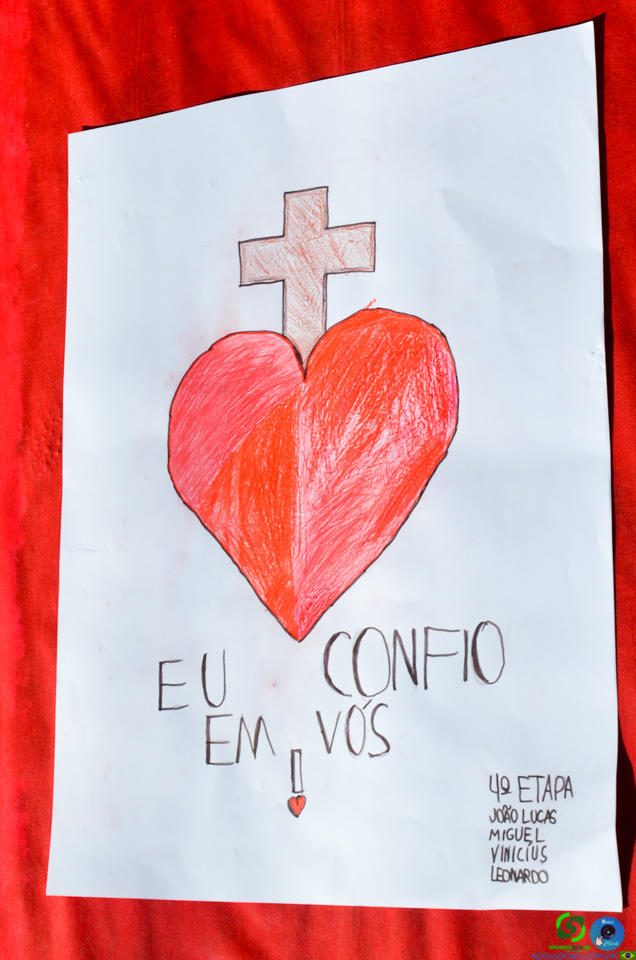 EU CONFIO
EM VÓS
!
4º ETAPA
JOÃO LUCAS
MIGUEL
VINICÍUS
LEONARDO